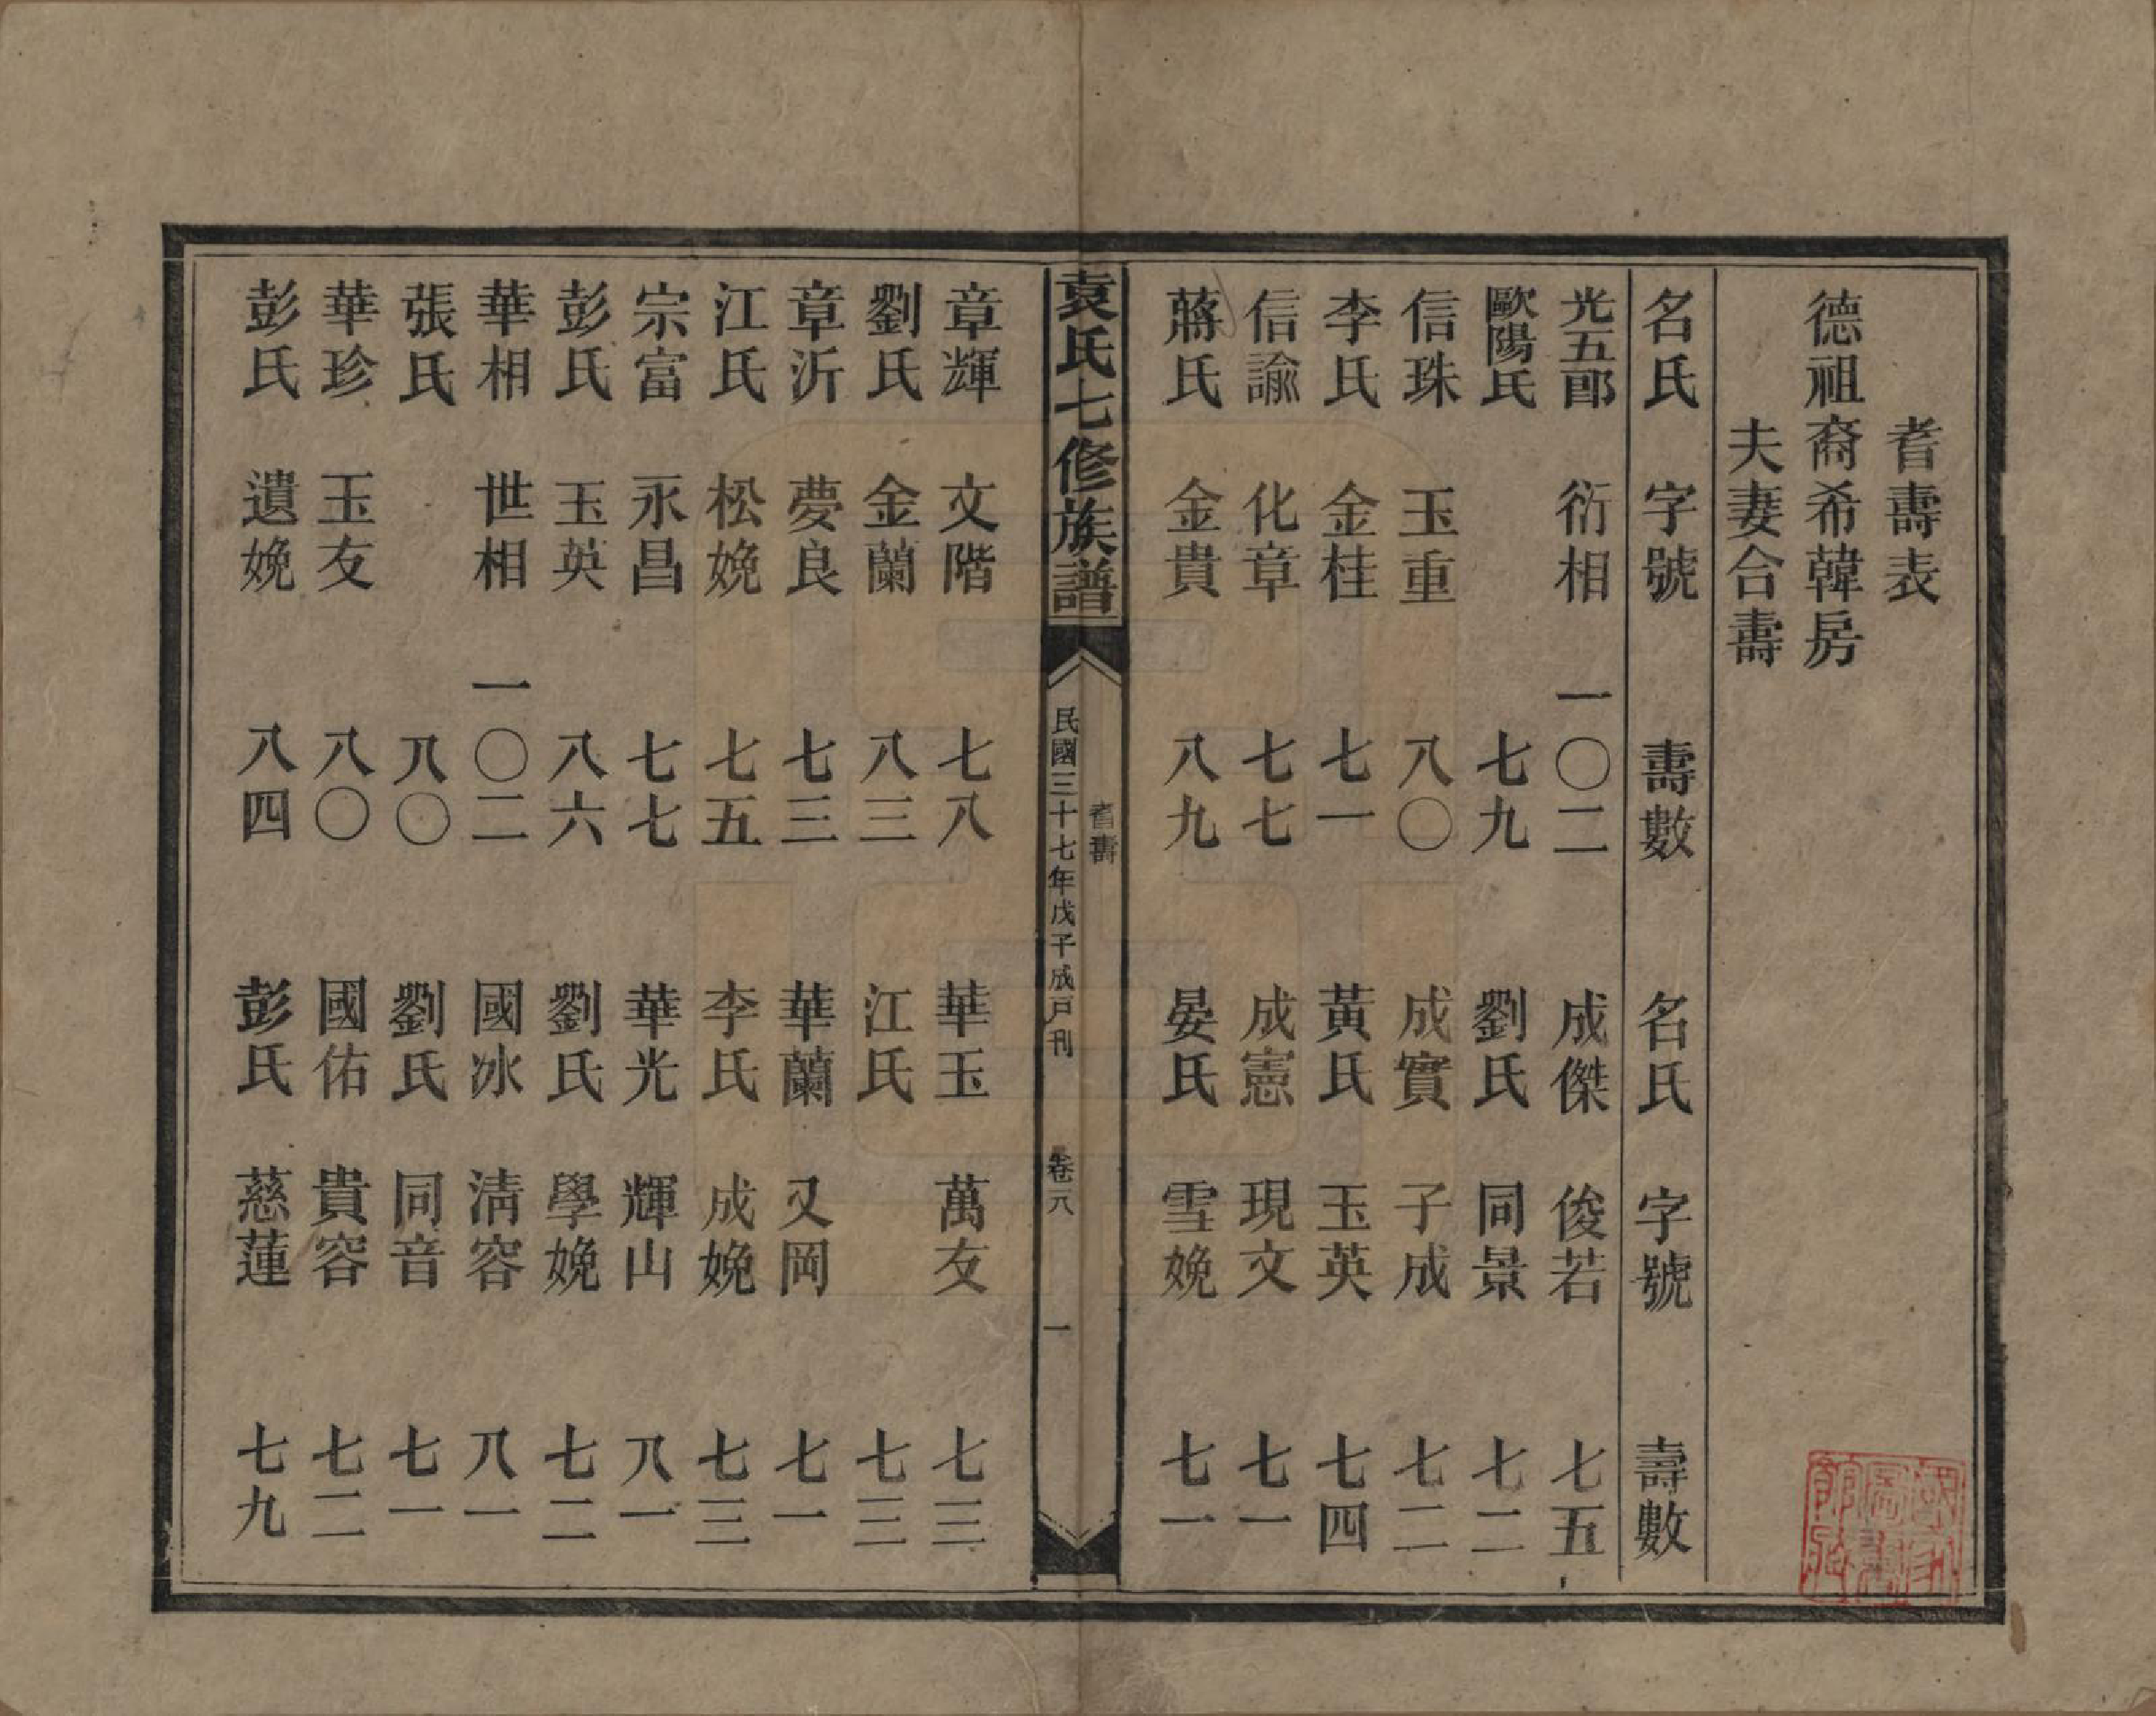 耆壽表
德祖裔希韓房
夫妻合壽
名氏 字號 壽數 名氏 字號 壽數
光五郎 衍相 一〇二 成傑 俊若 七五
歐陽氏 七九 劉氏 同景 七二
信珠 玉重 八〇 成實 子成 七二
李氏 金桂 七一 黃氏 玉英 七四
信諭 化章 七七 成憲 現文 七一
蔣氏 金貴 八九 晏氏 雪娩 七一
袁氏七修族譜
耆壽
民國三十七年戊子成戸刊 卷八 一
章輝 文階 七八 華玉 萬友 七三
劉氏 金蘭 八三 江氏 七三
章沂 夢良 七三 華蘭 又岡 七一
江氏 松娩 七五 李氏 成娩 七三
宗富 永昌 七七 華光 輝山 八一
彭氏 玉英 八六 劉氏 學娩 七二
華相 世相 一〇二 國冰 淸容 八一
張氏 八〇 劉氏 同音 七一
華珍 玉友 八〇 國佑 貴容 七二
彭氏 遺娩 八四 彭氏 慈蓮 七九